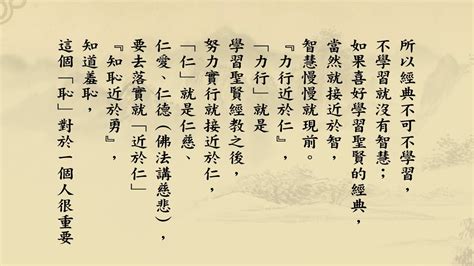 所以經典不可不學習，
不學習就沒有智慧；
如果喜好學習聖賢的經典，
當然就接近於智，
智慧慢慢就現前。
『力行近於仁』，
「力行」就是
學習聖賢經教之後，
努力實行就接近於仁，
「仁」就是仁慈、
仁愛、仁德（佛法講慈悲），
要去落實就「近於仁」
『知恥近於勇』，
知道羞恥，
這個「恥」對於一個人很重要